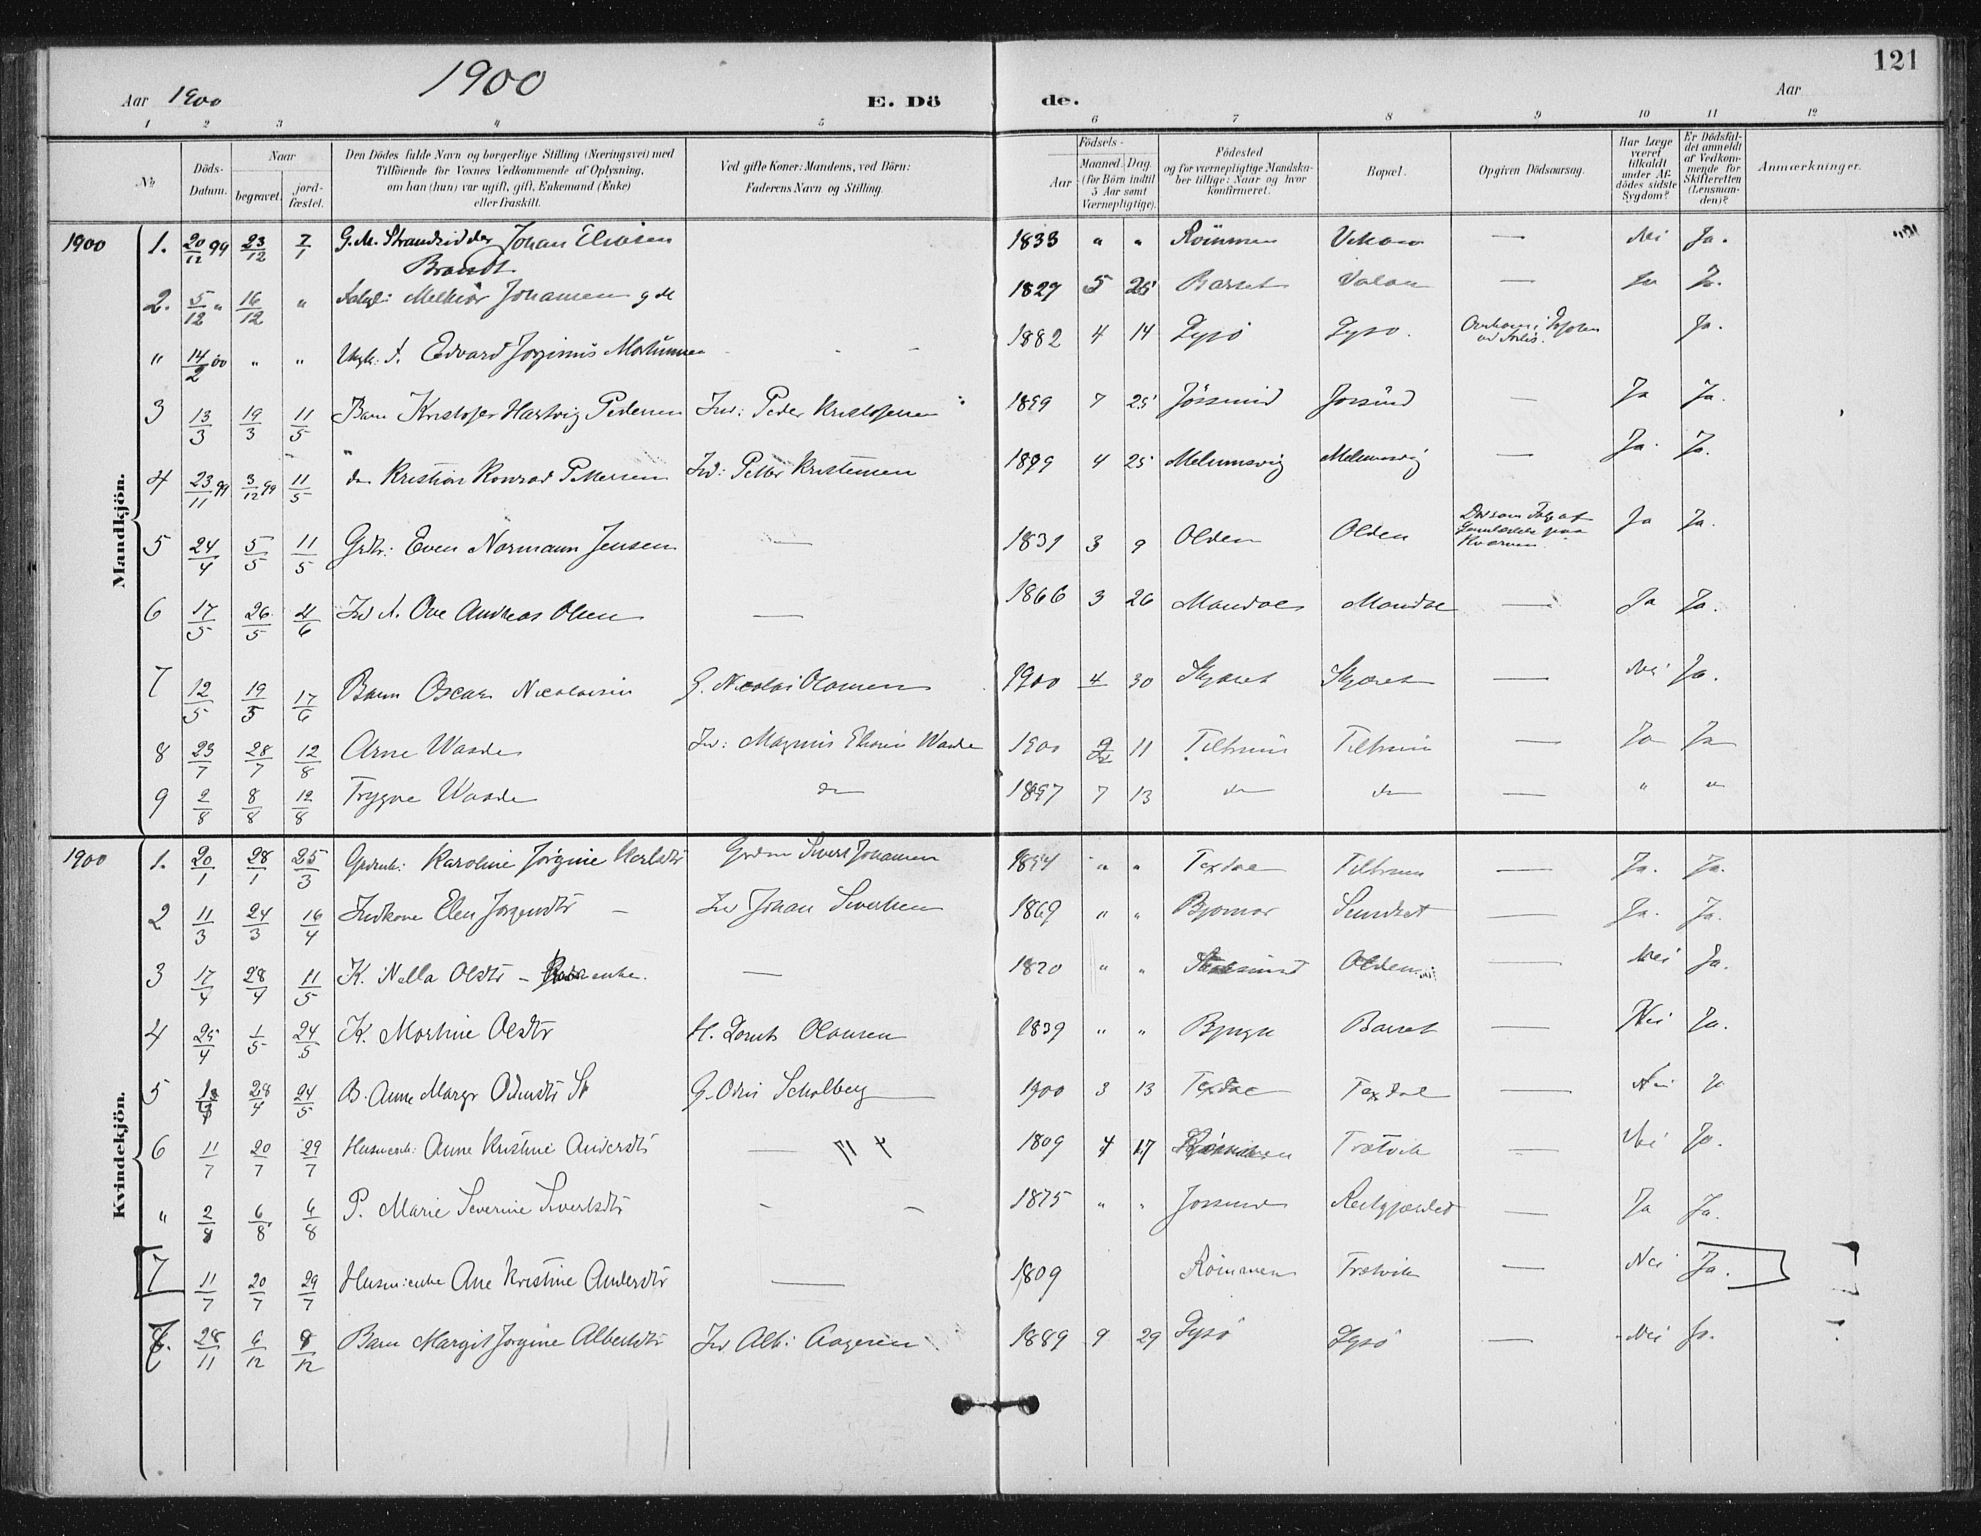 1900
121
Aar 1900
E. Dö
de.
Aar
1 2 3 4 5 6 7 8 9 10 11 12
No
Döds-Datum.
Naar
begravet.
jord-fæstet.
Den Dödes fulde Navn og borgerlige Stilling (Næringsvei) med
Tilföiende for Voxnes Vedkommende af Oplysning,
om han (hun) var ugift, gift, Enkemand (Enke)
eller fraskilt.
Ved gifte Koner: Mandens, ved Börn:
Faderens Navn og Stilling.
Födsels-
Aar
Maaned. Dag.
(for Börn indtil
5 Aar samt
Værnepligtige).
Födested
og for værnepligtige Mandska-
ber tillige: Naar og hvor
konfirmeret.
Bopæl.
Opgiven Dödsaarsag.
Har Læge
været
tilkaldt
under Af-
dödes sidste
Sygdom?
Er Dödsfal-
det anmeldt
af Vedkom-
mende for
Skifteretten
(Lensman-
den)?
Anmærkninger.
Mandkjön.
1900 1. 20/12 99 23/12 7/1 G. M. Strandsidder Johan Eliasen 1833 " " Rømmen Nei Ja.
Brandt
2. 5/12 " 16/12 " Melkiør Johansen 1827 5 25 Barset Valan — Ja Ja.
" 14/2 00 " " Edvard 1882 4 14 Lysø Lysø. Ja.
3 13/3 19/3 11/5 Barn Kristofer Hartvig Pedersen Ind: Peder Kristofersen 1899 7 25 Jøssund Jossund — Ja Ja.
4 23/11 99 3/12 99 11/5 do Kristian Konrad Pettersen Ind: Petter Kristensen 1899 4 25 Melumsvig Melumsvig — Ja. Ja.
5 24/4 5/5 11/5 Even Normann Jensen — 1831 3 9 Olden Olden Ja Ja.
6 17/5 26/5 4/6 Ove Andreas Olsen — 1866 3 26 — Ja Ja.
7 12/5 19/5 17/6 Barn Oscar Nicolaisen G. Nicolai Olausen 1900 4 30 — Nei Ja.
8 23/7 28/7 12/8 Arne Waade Ind: Magnus Waade 1900 11 — Ja Ja
9 2/8 8/8 12/8 Trygve Waade do 1897 7 13 do do — " "
Kvindekjön.
1900 1. 20/1 28/1 25/3 Karoline Jørgine Sivert Johansen " " Texdal — Ja. Ja.
2 11/3 24/3 16/4 Indkone Elen Jørgensdtr — Ind Johan Sivertsen 1869 " " — Ja. Ja.
3 17/4 28/4 11/5 K. Nella Olsdtr — 1820 " " Olden — Nei Ja.
4 25/4 1/5 24/5 K. Martine Olsdtr H. Olausen 1839 " " Barset — Nei Ja.
5 28/4 24/5 B. Anne Margr. G. Schølberg 1900 3 13 Texdal Texdal — Nei
6 11/7 20/7 29/7 Anne Kristine Andersdtr — 1809 4 17 Trætvik — Nei Ja.
" 2/8 6/8 6/8 P. Marie Severine Sivertsdtr 1875 " " Jossund — Ja Ja.
7 11/7 20/7 29/7 Ane Kristine Andersdtr — 1809 Rømmen Trætvik — Nei Ja.
28/11 6/12 Barn Margit Jørgine Albertsdtr 1889 9 29 Lysø Lysø — Nei Ja.